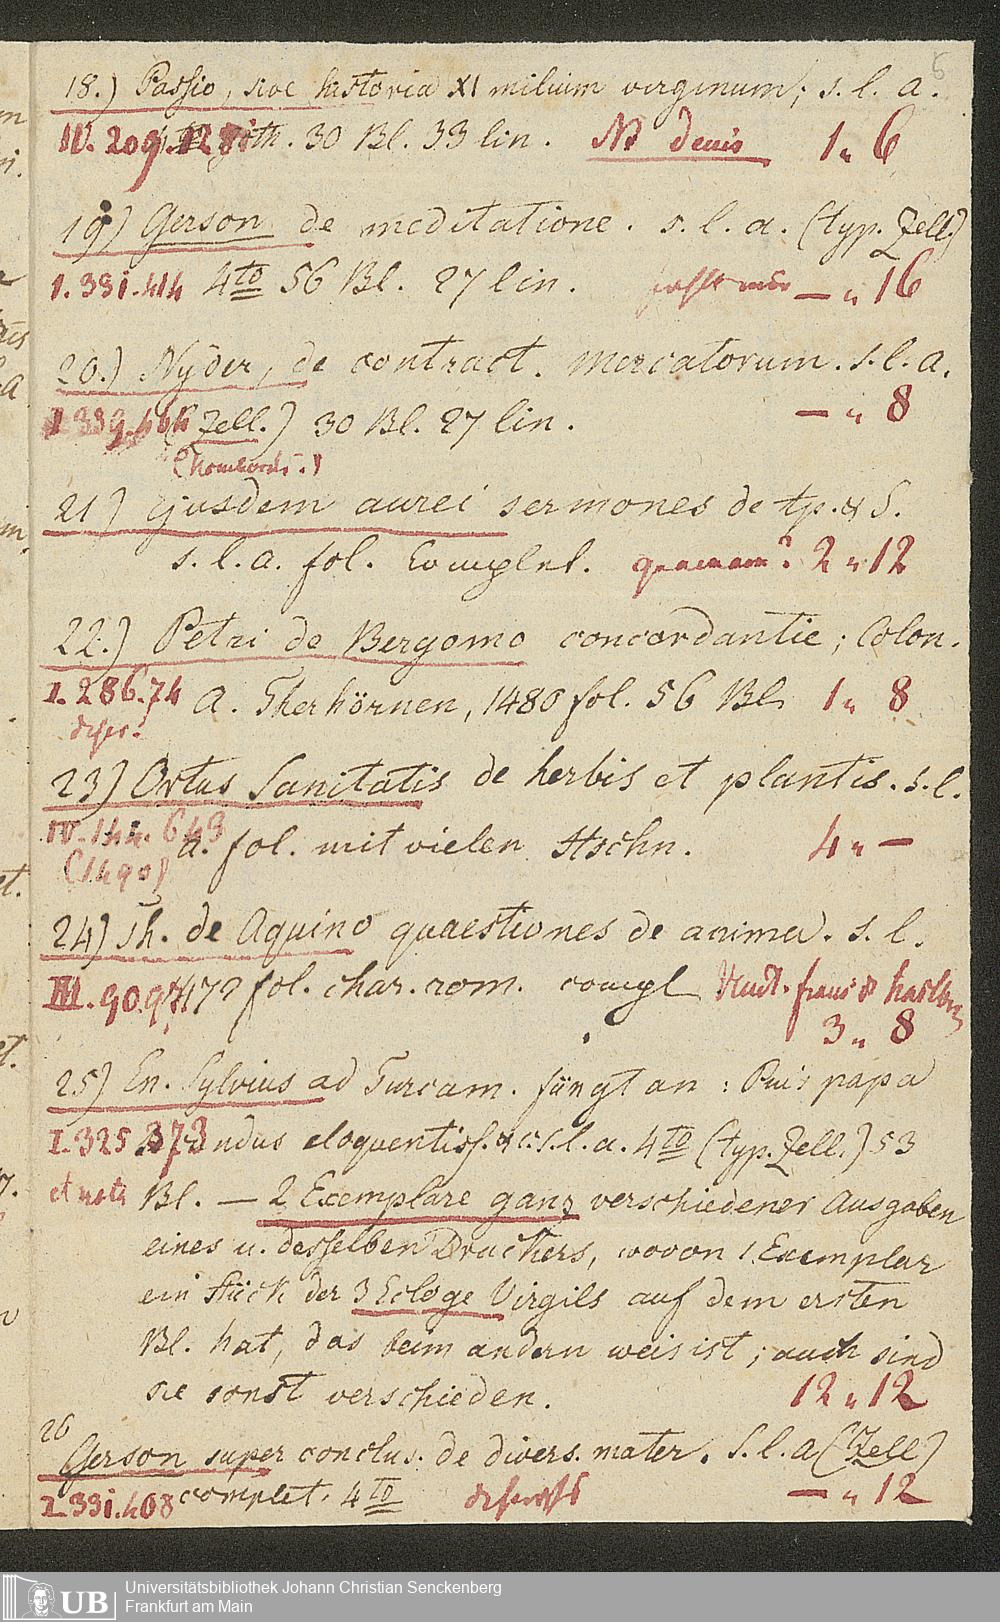 5
18.) Passio, sive historia XI milium virginum; s. l. a.
IV. 209. goth. 30 Bl. 33 lin. NB denis 1 „ 6
19) Gerson de meditatione. s. l. a. (typ. Zell.)
I. 331. 414 4to 56 Bl. 27 lin. — „ 16
20.) Nyder, de contract. mercatorum. s. l. a.
I 339. (Zell.) 30 Bl. 27 lin. — „ 8
21) ejusdem aurei sermones de tp. et S.
s. l. a. fol. Complet. 2 „ 12
22.) Petri de Bergomo concordantie; Colon.
I. 286. 74 A. Therhörnen, 1480 fol. 56 Bl 1 „ 8
defec.
23) Ortus Sanitatis de herbis et plantis. s. l.
IV. 144. 649 a. fol. mit vielen Hschn. 4 „ —
(1490)
24) Th. de Aquino quaestiones de anima. s. l.
III. 90. 97 1472 fol. char. rom. compl
3 „ 8
25) En. Sylvius ad Turcam. fängt an: Pius papa
I. 325. 373 eloquentiss. &c. s. l. a. 4to (typ. Zell.) 53
Bl. — 2 Exemplare ganz verschiedener Ausgaben
eines u. desselben Druckers, wovon 1 Exemplar
ein Stück der 3 Ecloge Virgils auf dem ersten
Bl. hat, das beim andern weis ist; auch sind
sie sonst verschieden. 12 „ 12
26
Gerson super conclus. de divers. mater. S. l. a (Zell)
I. 331. 408 complet. 4to defect — „ 12
UB
Universitätsbibliothek Johann Christian Senckenberg
Frankfurt am Main